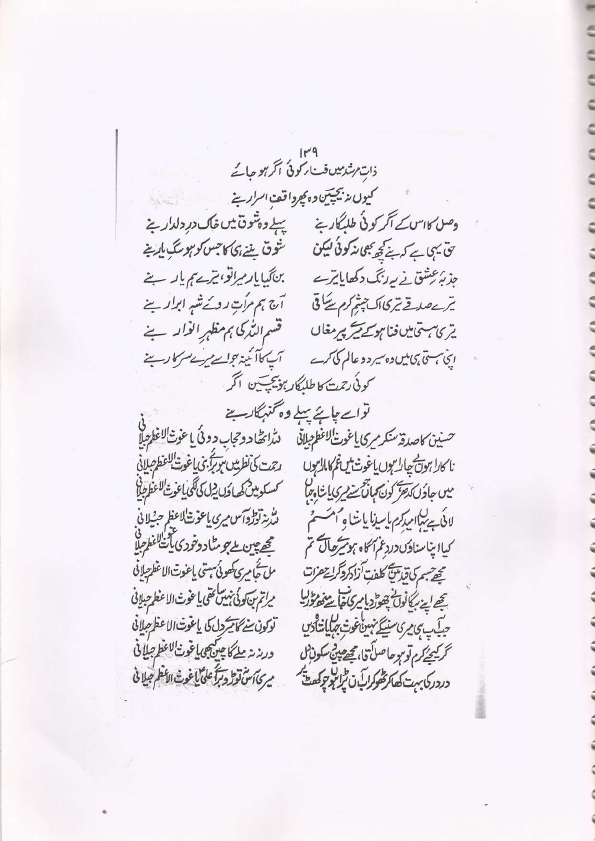 ۱۳۹
ذاتِ مرشد میں فناء کوئی اگر ہو جائے
کیوں نہ بیچین وہ پھر واقفِ اسرار بنے
وصل کا اس کے اگر کوئی طلبگار بنے پہلے وہ شوق میں خاکِ درِ دلدار بنے
حق یہی ہے کہ بنے کچھ بھی نہ کوئی لیکن شوق بننے ہی کا جس کو ہو سگِ یار بنے
جذبۂ عشق نے یہ رنگ دکھایا تیرے بن گیا یار میرا تو، تیرے ہم یار بنے
تیرے صدقے تیری اک چشمِ کرم سے ساقی آج ہم مرأتِ روئے شہہ ابرار بنے
تیری ہستی میں فنا ہو کے میرے پیر مغاں قسم اللہ کی ہم مظہرِ انوار بنے
اپنی ہستی ہی میں وہ سیر دو عالم کی کرے آپ کا آئینہ جو اے میرے سرکار بنے
کوئی رحمت کا طلبگار ہو بیچین اگر
تو اسے چاہئے پہلے وہ گنہگار بنے
حسنین کا صدقہ سنکر میری یا غوث الاعظم جیلانی للہ اٹھا دو حجابِ دوئی یا غوث الاعظم جیلانی
ناکارا ہوں بے چارا ہوں یا غوث میں غم کا مارا ہوں رحمت کی نظر میں ہو برائی یا غوث الاعظم جیلانی
میں جاؤں کدھر ہے کون کہاں جز تیرے میری یا شاہِ جہاں کسکو میں دکھاؤں دل کی لگی یا غوث الاعظم جیلانی
لائی ہے یہاں امیدِ کرم یا سیدنا یا شاہِ امم للہ نہ توڑو آس میری یا غوث الاعظم جیلانی
کیا اپنا سناؤں دردِ غم آگاہ ہو میرے حال سے تم مجھے چین ملے جو مٹا دو خودی یا غوث الاعظم جیلانی
مجھے جسم کی قید میں ہے کلفت آزاد کرو گر اے حضرت مل جائے میری کھوئی ہستی یا غوث الاعظم جیلانی
مجھے اپنے بیگانوں نے چھوڑ دیا میری جانب سے منھ موڑ لیا میرا تم بن کوئی نہیں ساتھی یا غوث الاعظم جیلانی
جب آپ ہی میری سنیگے نہیں یا غوث جہاں یا شاہ دیں تو کون سنے گا میرے دل کی یا غوث الاعظم جیلانی
گر کیجئے کرم تو ہو حاصل آقا، مجھے چین سکون دل ورنہ نہ ملے گا چین کبھی یا غوث الاعظم جیلانی
در در کی بہت کھا کر ٹھوکر اب آن پڑا ہوں چوکھٹ پر میری آس نہ توڑو برائے علی یا غوث الاعظم جیلانی